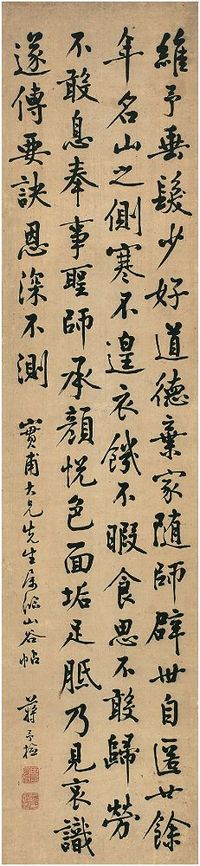 維予垂髮少好道德棄家隨師辟世自匿廿餘
年名山之側寒不遑衣饑不暇食思不敢歸勞
不敢息奉事聖師承顏悅色面垢足胝乃見哀識
遂傳要訣恩深不測
實甫大兄先生屬臨山谷帖
蔣予檢